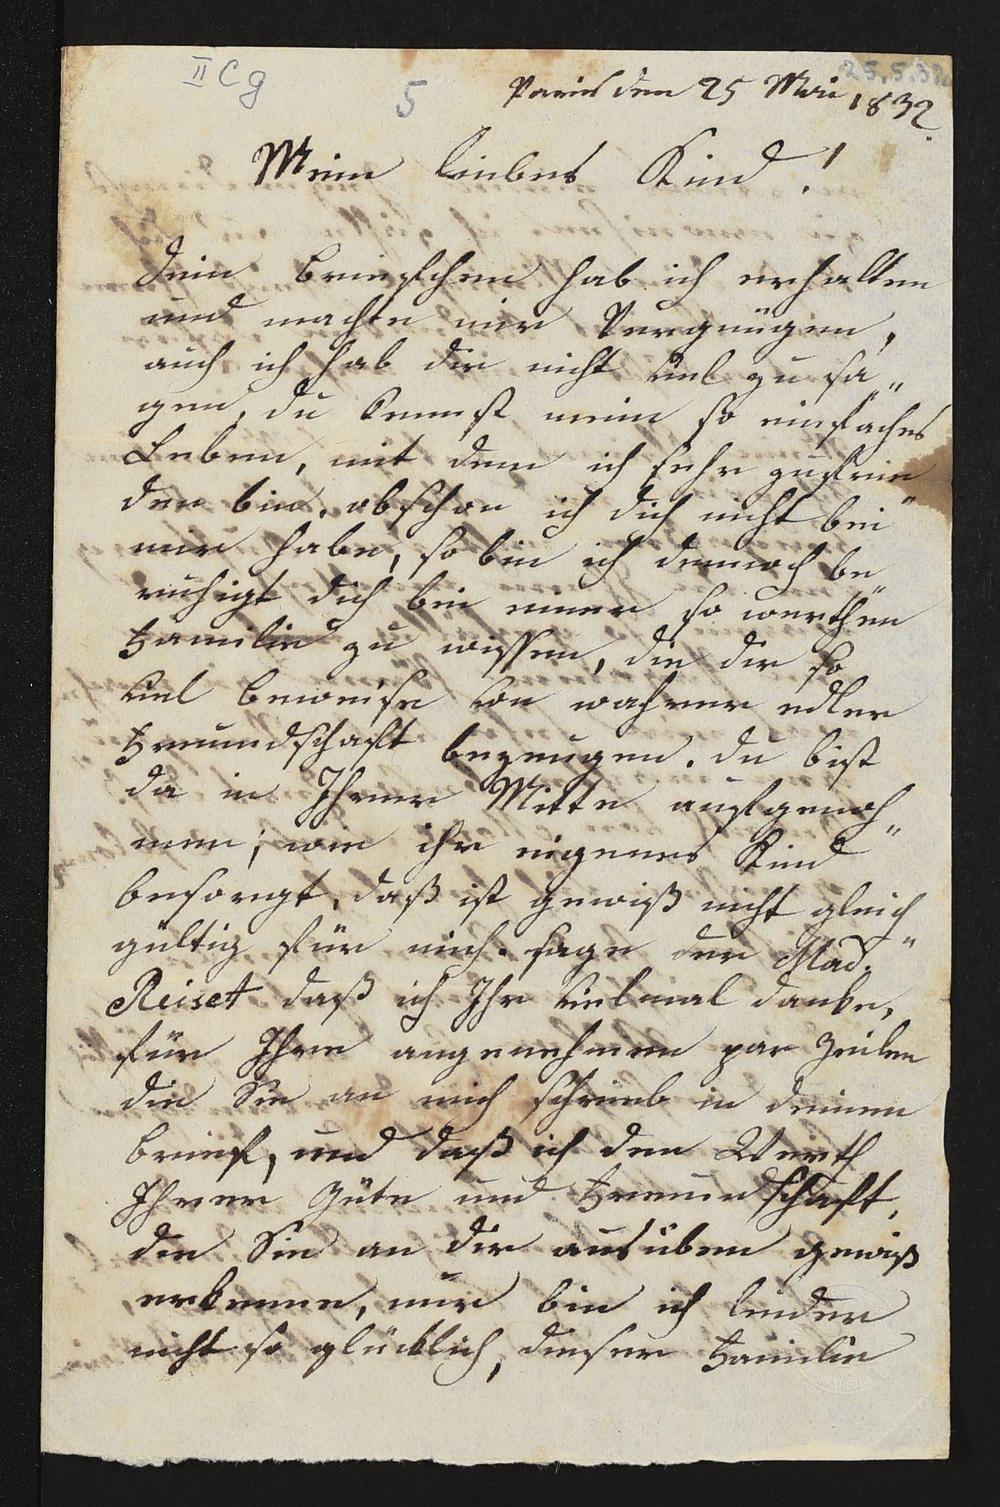 II C g
5
25.5.32
Paris den 25 Mai 1832.
Mein liebes Kind!
Dein briefchen hab ich erhalten
und machte mir Vergnügen,
auch ich hab dir nicht viel zu sa„
gen, du kennst mein so einfaches
Leben, mit dem ich sehr zufrie„
den bin. obschon ich dich nicht bei
mir habe, so bin ich dennoch be„
ruhigt dich bei einer so werthen
Familie zu wissen, die dir so
viel beweise von wahrer edler
Freundschaft bezeugen. du bist
da in Ihrer Mitte aufgenoh„
men; wie ihr eigenes Kind
besorgt, daß ist gewiß nicht gleich„
gültig für mich. sage der Mad.
Reiset daß ich Ihr vielmal danke,
für Ihre angenehmen par Zeilen
die Sie an mich schrieb in deinem
brief, und daß ich den Werth
Ihrer Güte und Freundschaft,
die Sie an dir ausüben gewiß
erkenne, nur bin ich leider
nicht so glücklich, dieser Familie